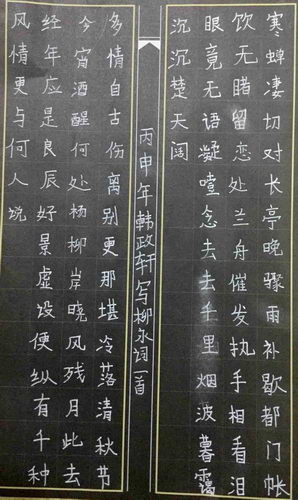 寒蝉凄切对长亭晚骤雨补歇都门帐
饮无睹留恋处兰舟催发执手相看泪
眼竟无语凝噎念去去千里烟波暮霭
沉沉楚天阔
丙申年韩政轩写柳永词一首
多情自古伤离别更那堪冷落清秋节
今宵酒醒何处杨柳岸晓风残月此去
经年应是良辰好景虚设便纵有千种
风情更与何人说